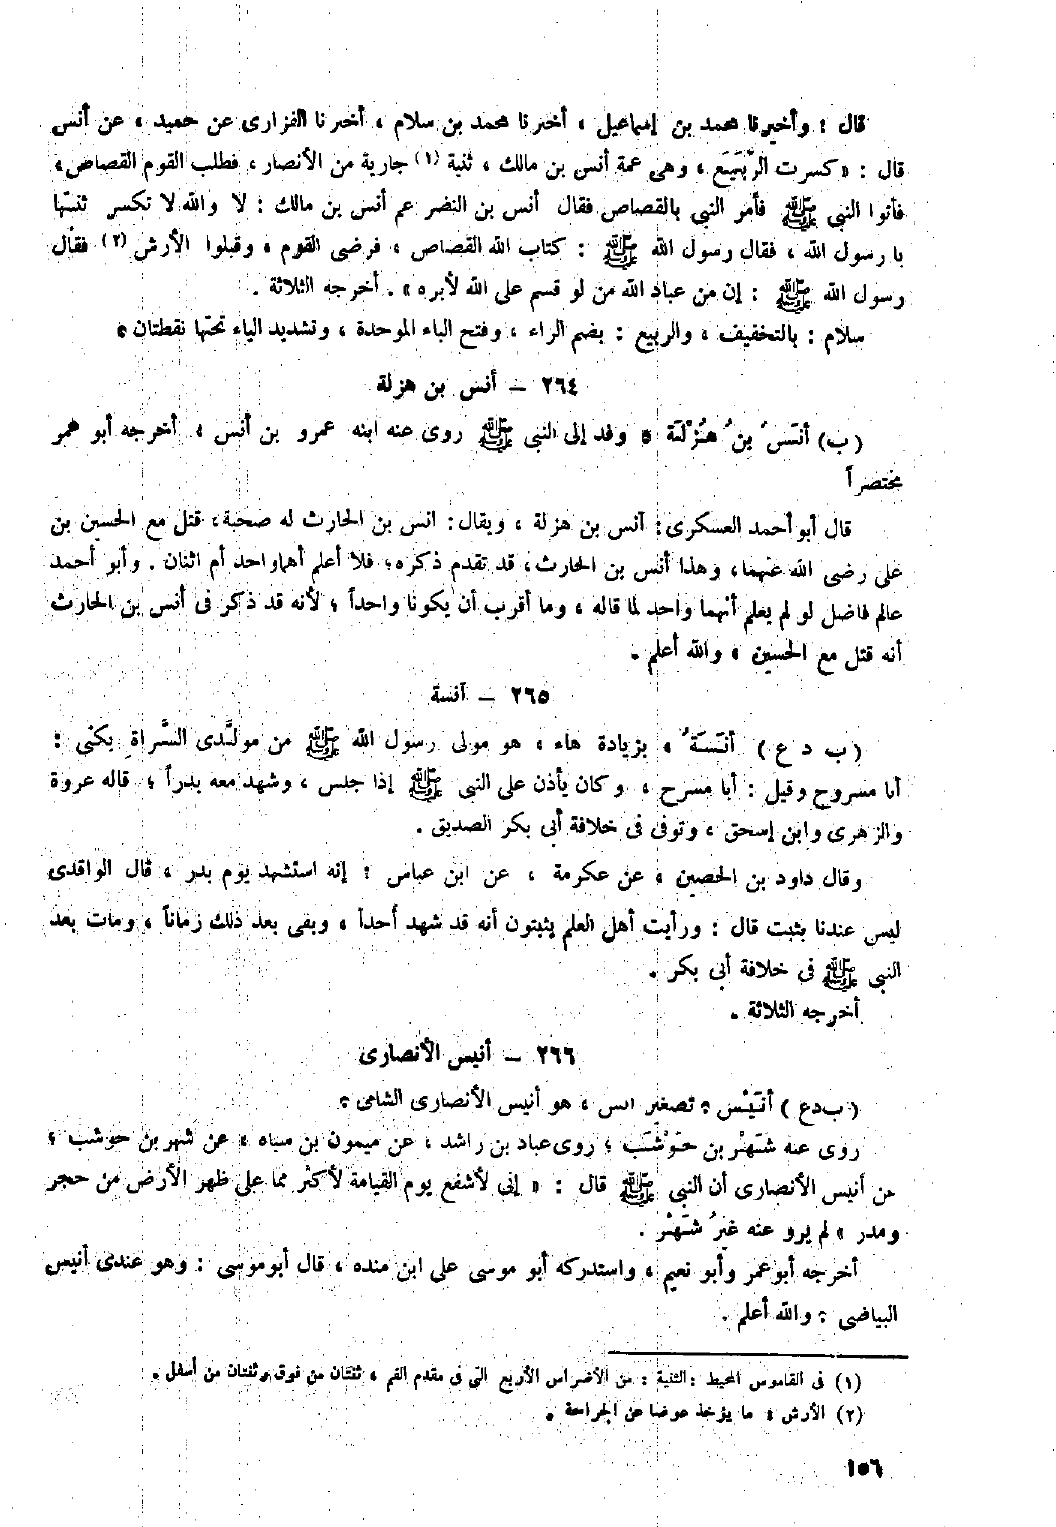 قال : وأخبرنا محمد بن إسماعيل ، أخبرنا محمد بن سلام ، أخبرنا الفزارى عن حميد ، عن أنس
قال : « كسرت الرُّبَيِّع ، وهى عمة أنس بن مالك ، ثنية (١) جارية من الأنصار ، فطلب القوم القصاص ،
فأتوا النبى ﷺ فأمر النبى بالقصاص فقال أنس بن النضر عم أنس بن مالك : لا والله لا تكسر ثنيتها
يا رسول الله ، فقال رسول الله ﷺ : كتاب الله القصاص ، فرضى القوم ، وقبلوا الأرش (٢) فقال
رسول الله ﷺ : إن من عباد الله من لو قسم على الله لأبره » . أخرجه الثلاثة .
سلام : بالتخفيف ، والربيع : بضم الراء ، وفتح الباء الموحدة ، وتشديد الياء تحتها نقطتان ،
٢٦٤ – أنس بن هزلة
( ب ) أنَسُ بنُ هُزْلَة ، وفد إلى النبى ﷺ روى عنه ابنه عمرو بن أنس ، أخرجه أبو عمر
مختصراً
قال أبو أحمد العسكرى : أنس بن هزلة ، ويقال : أنس بن الحارث له صحبة ، قتل مع الحسين بن
على رضى الله عنهما ، وهذا أنس بن الحارث ، قد تقدم ذكره ؛ فلا أعلم أهما واحد أم اثنان . وأبو أحمد
عالم فاضل لو لم يعلم أنهما واحد لما قاله ، وما أقرب أن يكونا واحداً ؛ لأنه قد ذكر فى أنس بن الحارث
أنه قتل مع الحسين ، والله أعلم .
٢٦٥ – أنسة
( ب د ع ) أنَسَةُ ، بزيادة هاء ، هو مولى رسول الله ﷺ من مولَّدى السَّراةِ يكنى :
أبا مسروح وقيل : أبا مسرح ، وكان يأذن على النبى ﷺ إذا جلس ، وشهد معه بدراً ؛ قاله عروة
والزهرى وابن إسحق ، وتوفى فى خلافة أبى بكر الصديق .
وقال داود بن الحصين ، عن عكرمة ، عن ابن عباس : إنه استشهد يوم بدر ، قال الواقدى
ليس عندنا بثبت قال : ورأيت أهل العلم يثبتون أنه قد شهد أحداً ، وبقى بعد ذلك زماناً ، ومات بعد
النبى ﷺ فى خلافة أبى بكر .
أخرجه الثلاثة .
٢٦٦ – أنيس الأنصارى
( ب د ع ) أُنَيْس ، تصغير أنس ، هو أنيس الأنصارى الشامى ،
روى عنه شَهْر بن حَوْشَب ؛ روى عباد بن راشد ، عن ميمون بن سياه ، عن شهر بن حوشب ؛
عن أنيس الأنصارى أن النبى ﷺ قال : « إنى لأشفع يوم القيامة لأكثر مما على ظهر الأرض من حجر
ومدر » لم يرو عنه غيرُ شَهْر .
أخرجه أبو عمر وأبو نعيم ، واستدركه أبو موسى على ابن منده ، قال أبو موسى : وهو عندى أنيس
البياضى ؛ والله أعلم .
(١) فى القاموس المحيط : الثنية : من الأضراس الأربع التى فى مقدم الفم ، ثنتان من فوق وثنتان من أسفل .
(٢) الأرش : ما يؤخذ عوضا عن الجراحة .
١٥٦